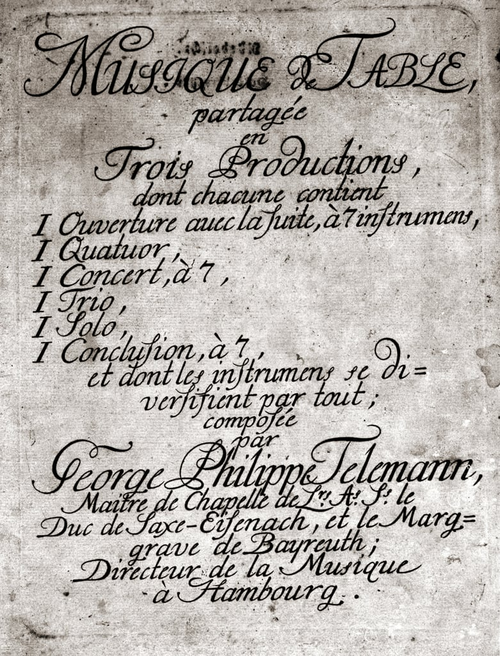 Musique de Table,
partagée
en
Trois Productions,
dont chacune contient
I Ouverture avec la suite, à 7 instrumens,
I Quatuor,
I Concert, à 7,
I Trio,
I Solo,
I Conclusion, à 7,
et dont les instrumens se di=
versifient par tout;
composée
par
George Philippe Telemann,
Maitre de Chapelle de L.rs A.s S.s le
Duc de Saxe-Eisenach, et le Marg=
grave de Bayreuth;
Directeur de la Musique
à Hambourg.